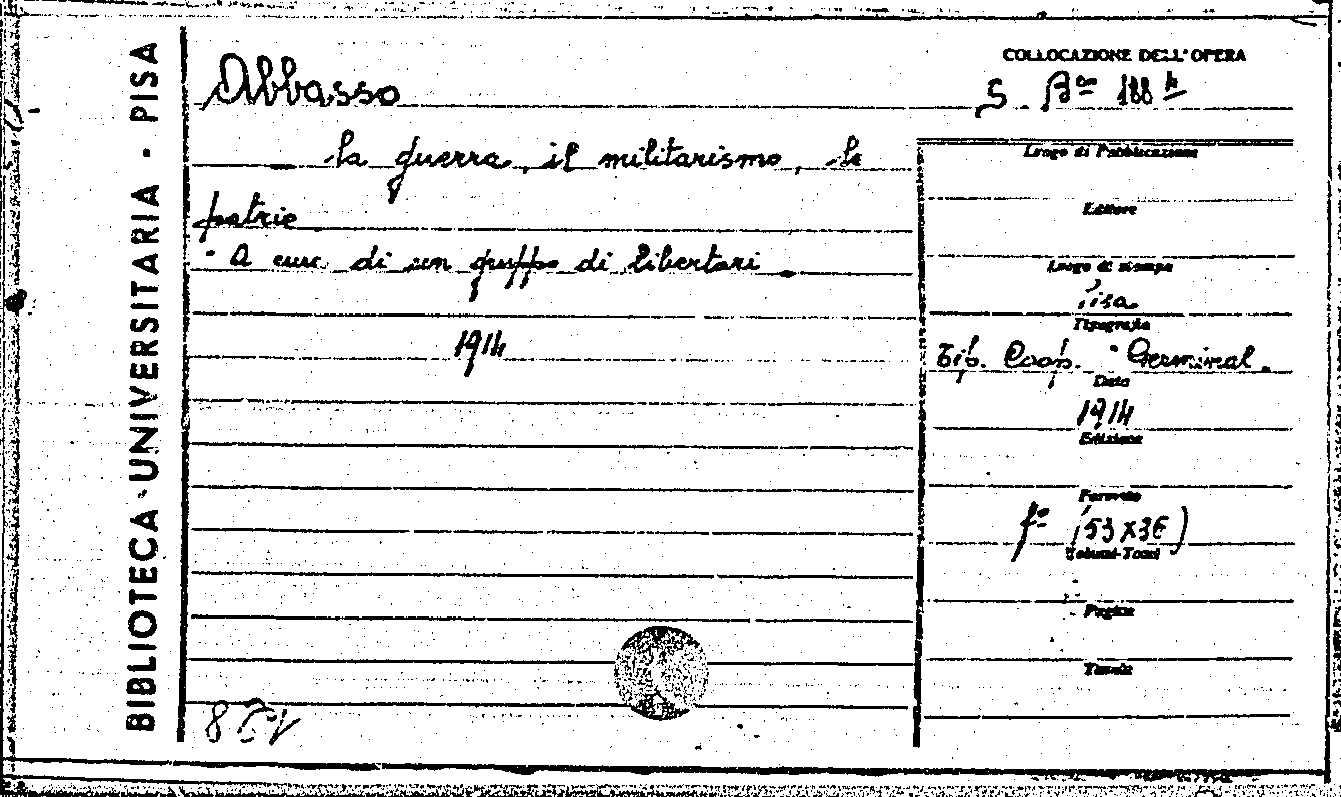 BIBLIOTECA UNIVERSITARIA - PISA
Abbasso
la guerra, il militarismo, la
patria
- A cura di un gruppo di libertari.
1914
COLLOCAZIONE DELL'OPERA
S. Bº 188
Luogo di Pubblicazione
Editore
Luogo di stampa
Pisa
Tipografia
Tip. Coop. "Germinal.
Data
1914
Edizione
Formato
fº (53x36)
Volumi-Tomi
Pagine
Tavole